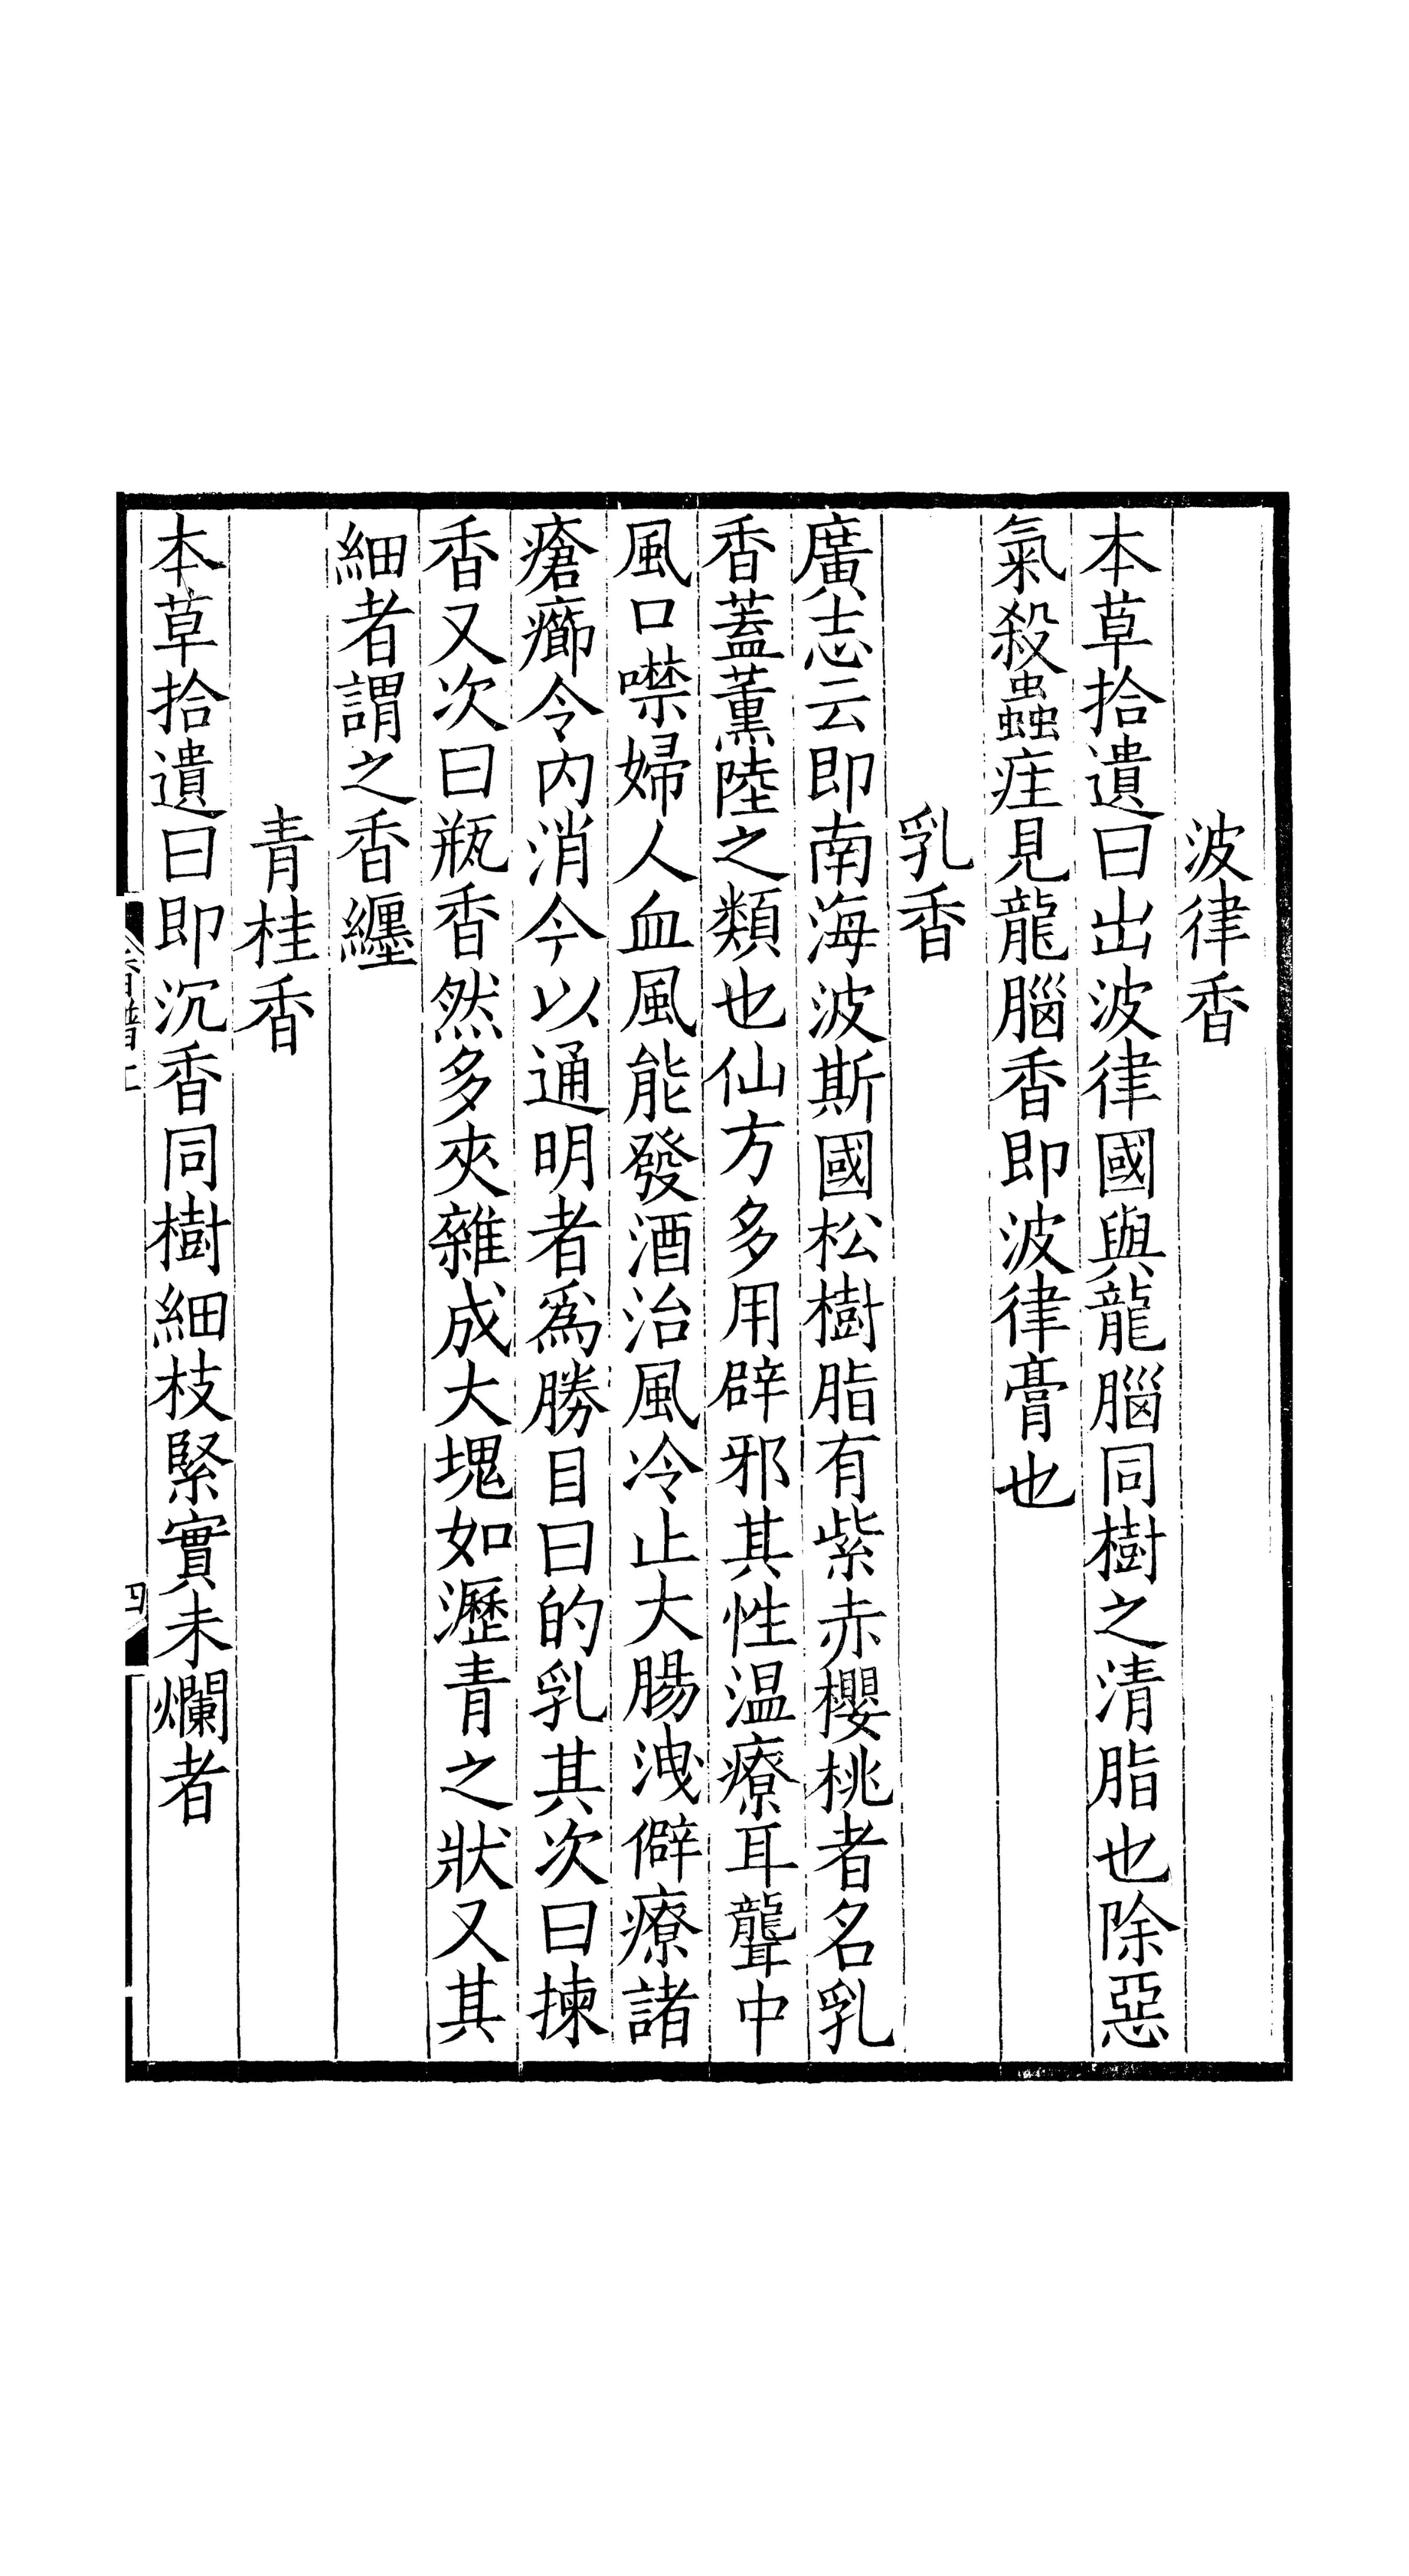 波律香
本草拾遺曰出波律國與龍腦同樹之清脂也除惡
氣殺蟲疰見龍腦香即波律膏也
乳香
廣志云即南海波斯國松樹脂有紫赤櫻桃者名乳
香蓋薰陸之類也仙方多用辟邪其性温療耳聾中
風口噤婦人血風能發酒治風冷止大腸洩僻療諸
瘡癤令内消今以通明者爲勝目曰的乳其次曰揀
香又次曰瓶香然多夾雜成大塊如瀝青之狀又其
細者謂之香纏
青桂香
本草拾遺曰即沉香同樹細枝緊實未爛者